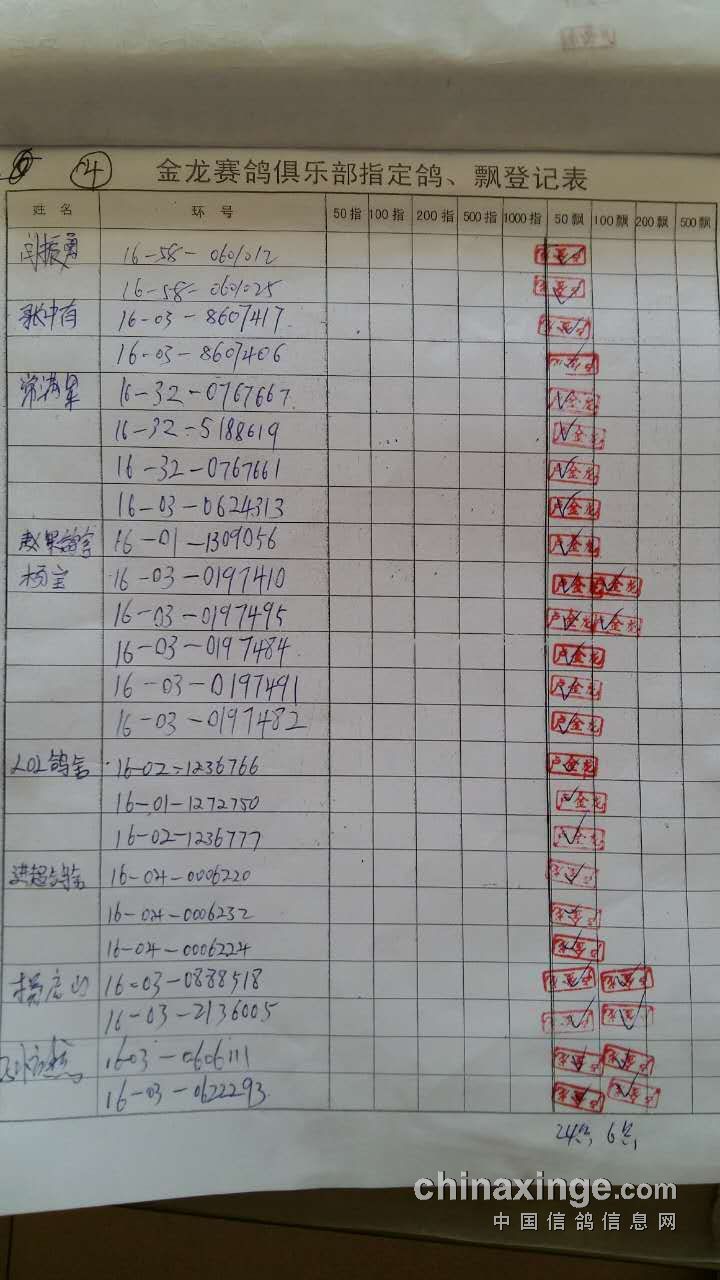 ④ 金龙赛鸽俱乐部指定鸽、飘登记表
姓名 环号 50指 100指 200指 500指 1000指 50飘 100飘 200飘 500飘
闫振勇 16-58-0601012
16-58-0601025
张中有 16-03-8607417
16-03-8607406
常满星 16-32-0767667
16-32-5188619
16-32-0767661
16-03-0624313 卢金龙
16-01-1309056 卢金龙
杨宝 16-03-0197410 卢金龙 卢金龙
16-03-0197495 卢金龙 卢金龙
16-03-0197484 卢金龙
16-03-0197491 卢金龙
16-03-0197482 卢金龙
LOL鸽舍 16-02-1236766 卢金龙
16-01-1272750 卢金龙
16-02-1236777 卢金龙
进超鸽舍 16-04-0006220
16-04-0006232
16-04-0006224
16-03-0888518
16-03-2136005
16-03-0606111
16-03-0622293
24 6
chinaxinge.com
中国信鸽信息网